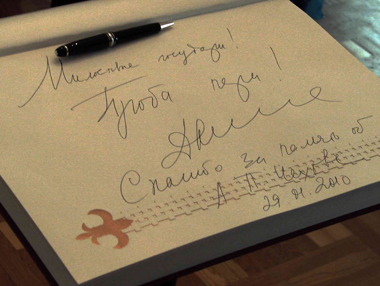 Милостивые государи!
Проба пера!
Спасибо за память об
А П Чехове
29.01.2010